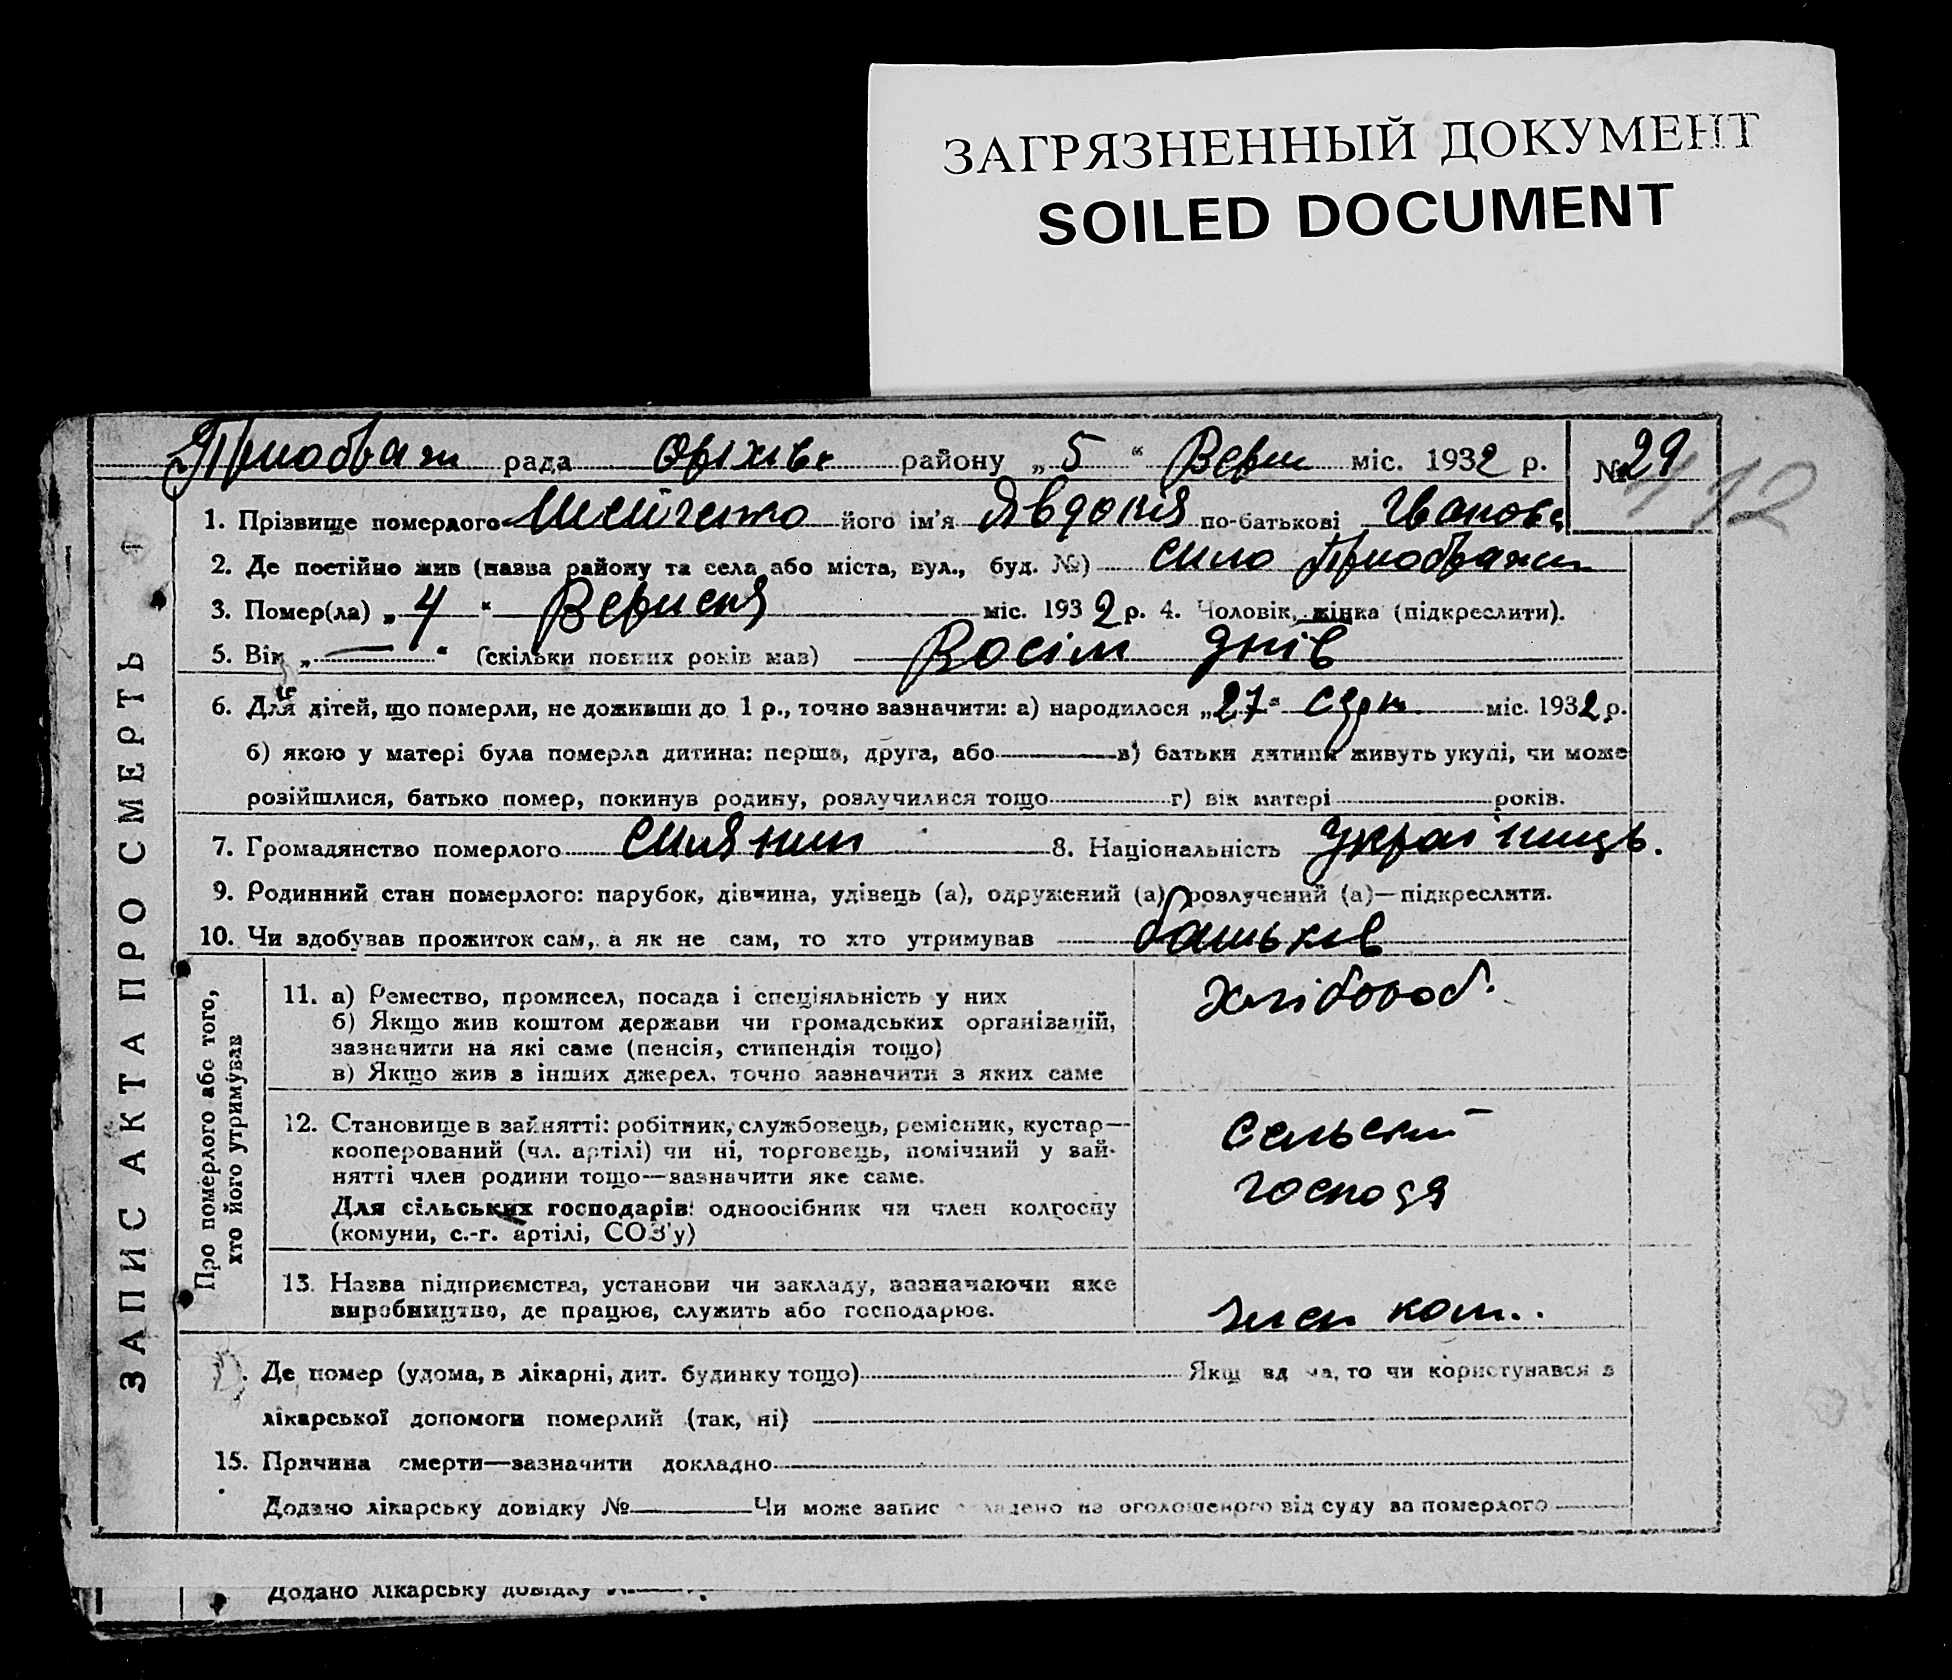 ЗАГРЯЗНЕННЫЙ ДОКУМЕНТ
SOILED DOCUMENT
рада Оріхівс району „5“ Верес міс. 1932 р. № 29
112
ЗАПИС АКТА ПРО СМЕРТЬ
1. Прізвище померлого його ім'я Явдокія по-батькові Іванова
2. Де постійно жив (назва району та села або міста, вул., буд. №) село
3. Помер(ла) „4“ Вересня міс. 1932 р. 4. Чоловік, жінка (підкреслити).
5. Вік „—“ (скільки повних років мав) Восім днів
6. Для дітей, що померли, не доживши до 1 р., точно зазначити: а) народилося „27“ серп міс. 1932 р.
б) якою у матері була померла дитина: перша, друга, або в) батьки дитини живуть укупі, чи може
розійшлися, батько помер, покинув родину, розлучилися тощо г) вік матері років.
7. Громадянство померлого селянин 8. Національність Українець.
9. Родинний стан померлого: парубок, дівчина, удівець (а), одружений (а) розлучений (а)—підкреслити.
10. Чи здобував прожиток сам, а як не сам, то хто утримував батьків
Про померлого або того,
хто його утримував
11. а) Ремество, промисел, посада і спеціяльність у них
б) Якщо жив коштом держави чи громадських організацій,
зазначити на які саме (пенсія, стипендія тощо)
в) Якщо жив з інших джерел, точно зазначити з яких саме
Хлібороб.
12. Становище в зайнятті: робітник, службовець, ремісник, кустар—
кооперований (чл. артілі) чи ні, торговець, помічний у зай-
нятті член родини тощо—зазначити яке саме.
Для сільських господарів: одноосібник чи член колгоспу
(комуни, с.-г. артілі, СОЗ'у)
Сельский
господя
13. Назва підприємства, установи чи закладу, зазначаючи яке
виробництво, де працює, служить або господарює.
член кол..
Де помер (удома, в лікарні, дит. будинку тощо) Якщ вд ма, то чи користувався з
лікарської допомоги померлий (так, ні)
15. Причина смерти—зазначити докладно
Додано лікарську довідку № Чи може запис складено на оголошеного від суду за померлого
Додано лікарську довідку №